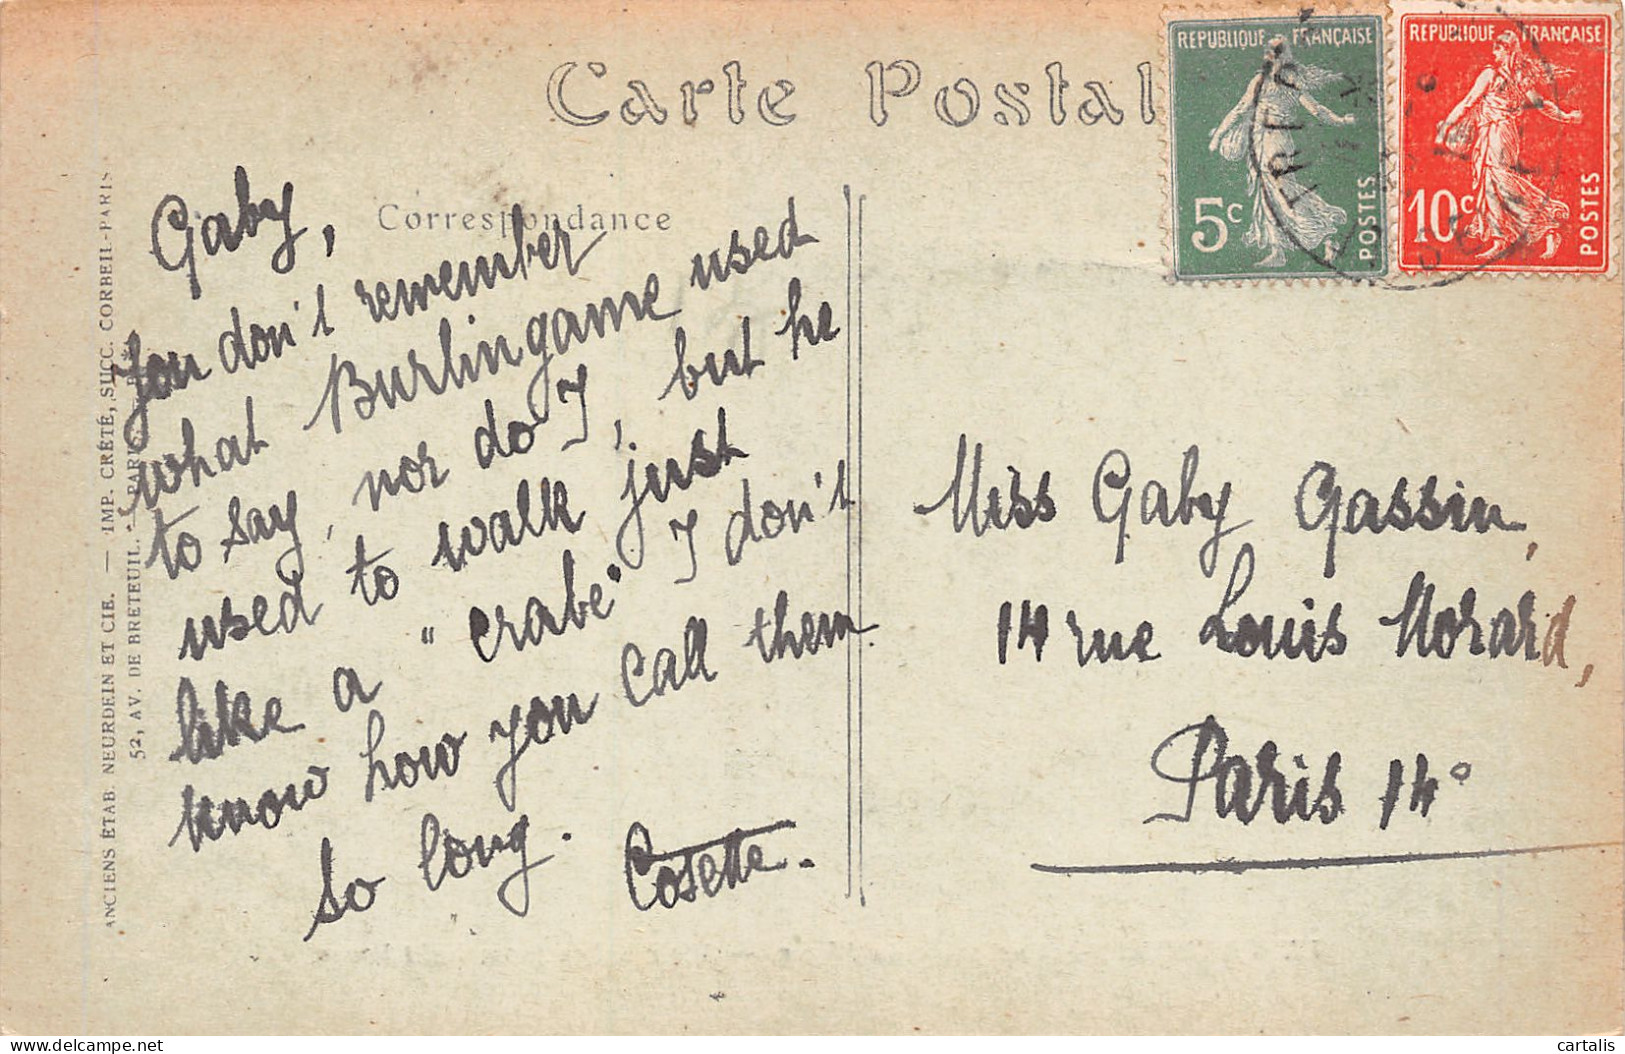 Carte Postale
REPUBLIQUE FRANÇAISE
5c
POSTES
REPUBLIQUE FRANÇAISE
10c
POSTES
Correspondance
Gaby,
You don't remember
what Burlingame used
to say, nor do I, but he
used to walk just
like a "crabe" I don't
know how you call them
so long.
Cosette.
Miss Gaby Gassin,
14 rue Louis Morard,
Paris 14e
ANCIENS ÉTAB. NEURDEIN ET CIE. — IMP. CRÉTÉ, SUCC. CORBEIL-PARIS
52, AV. DE BRETEUIL. PARIS
cartalis